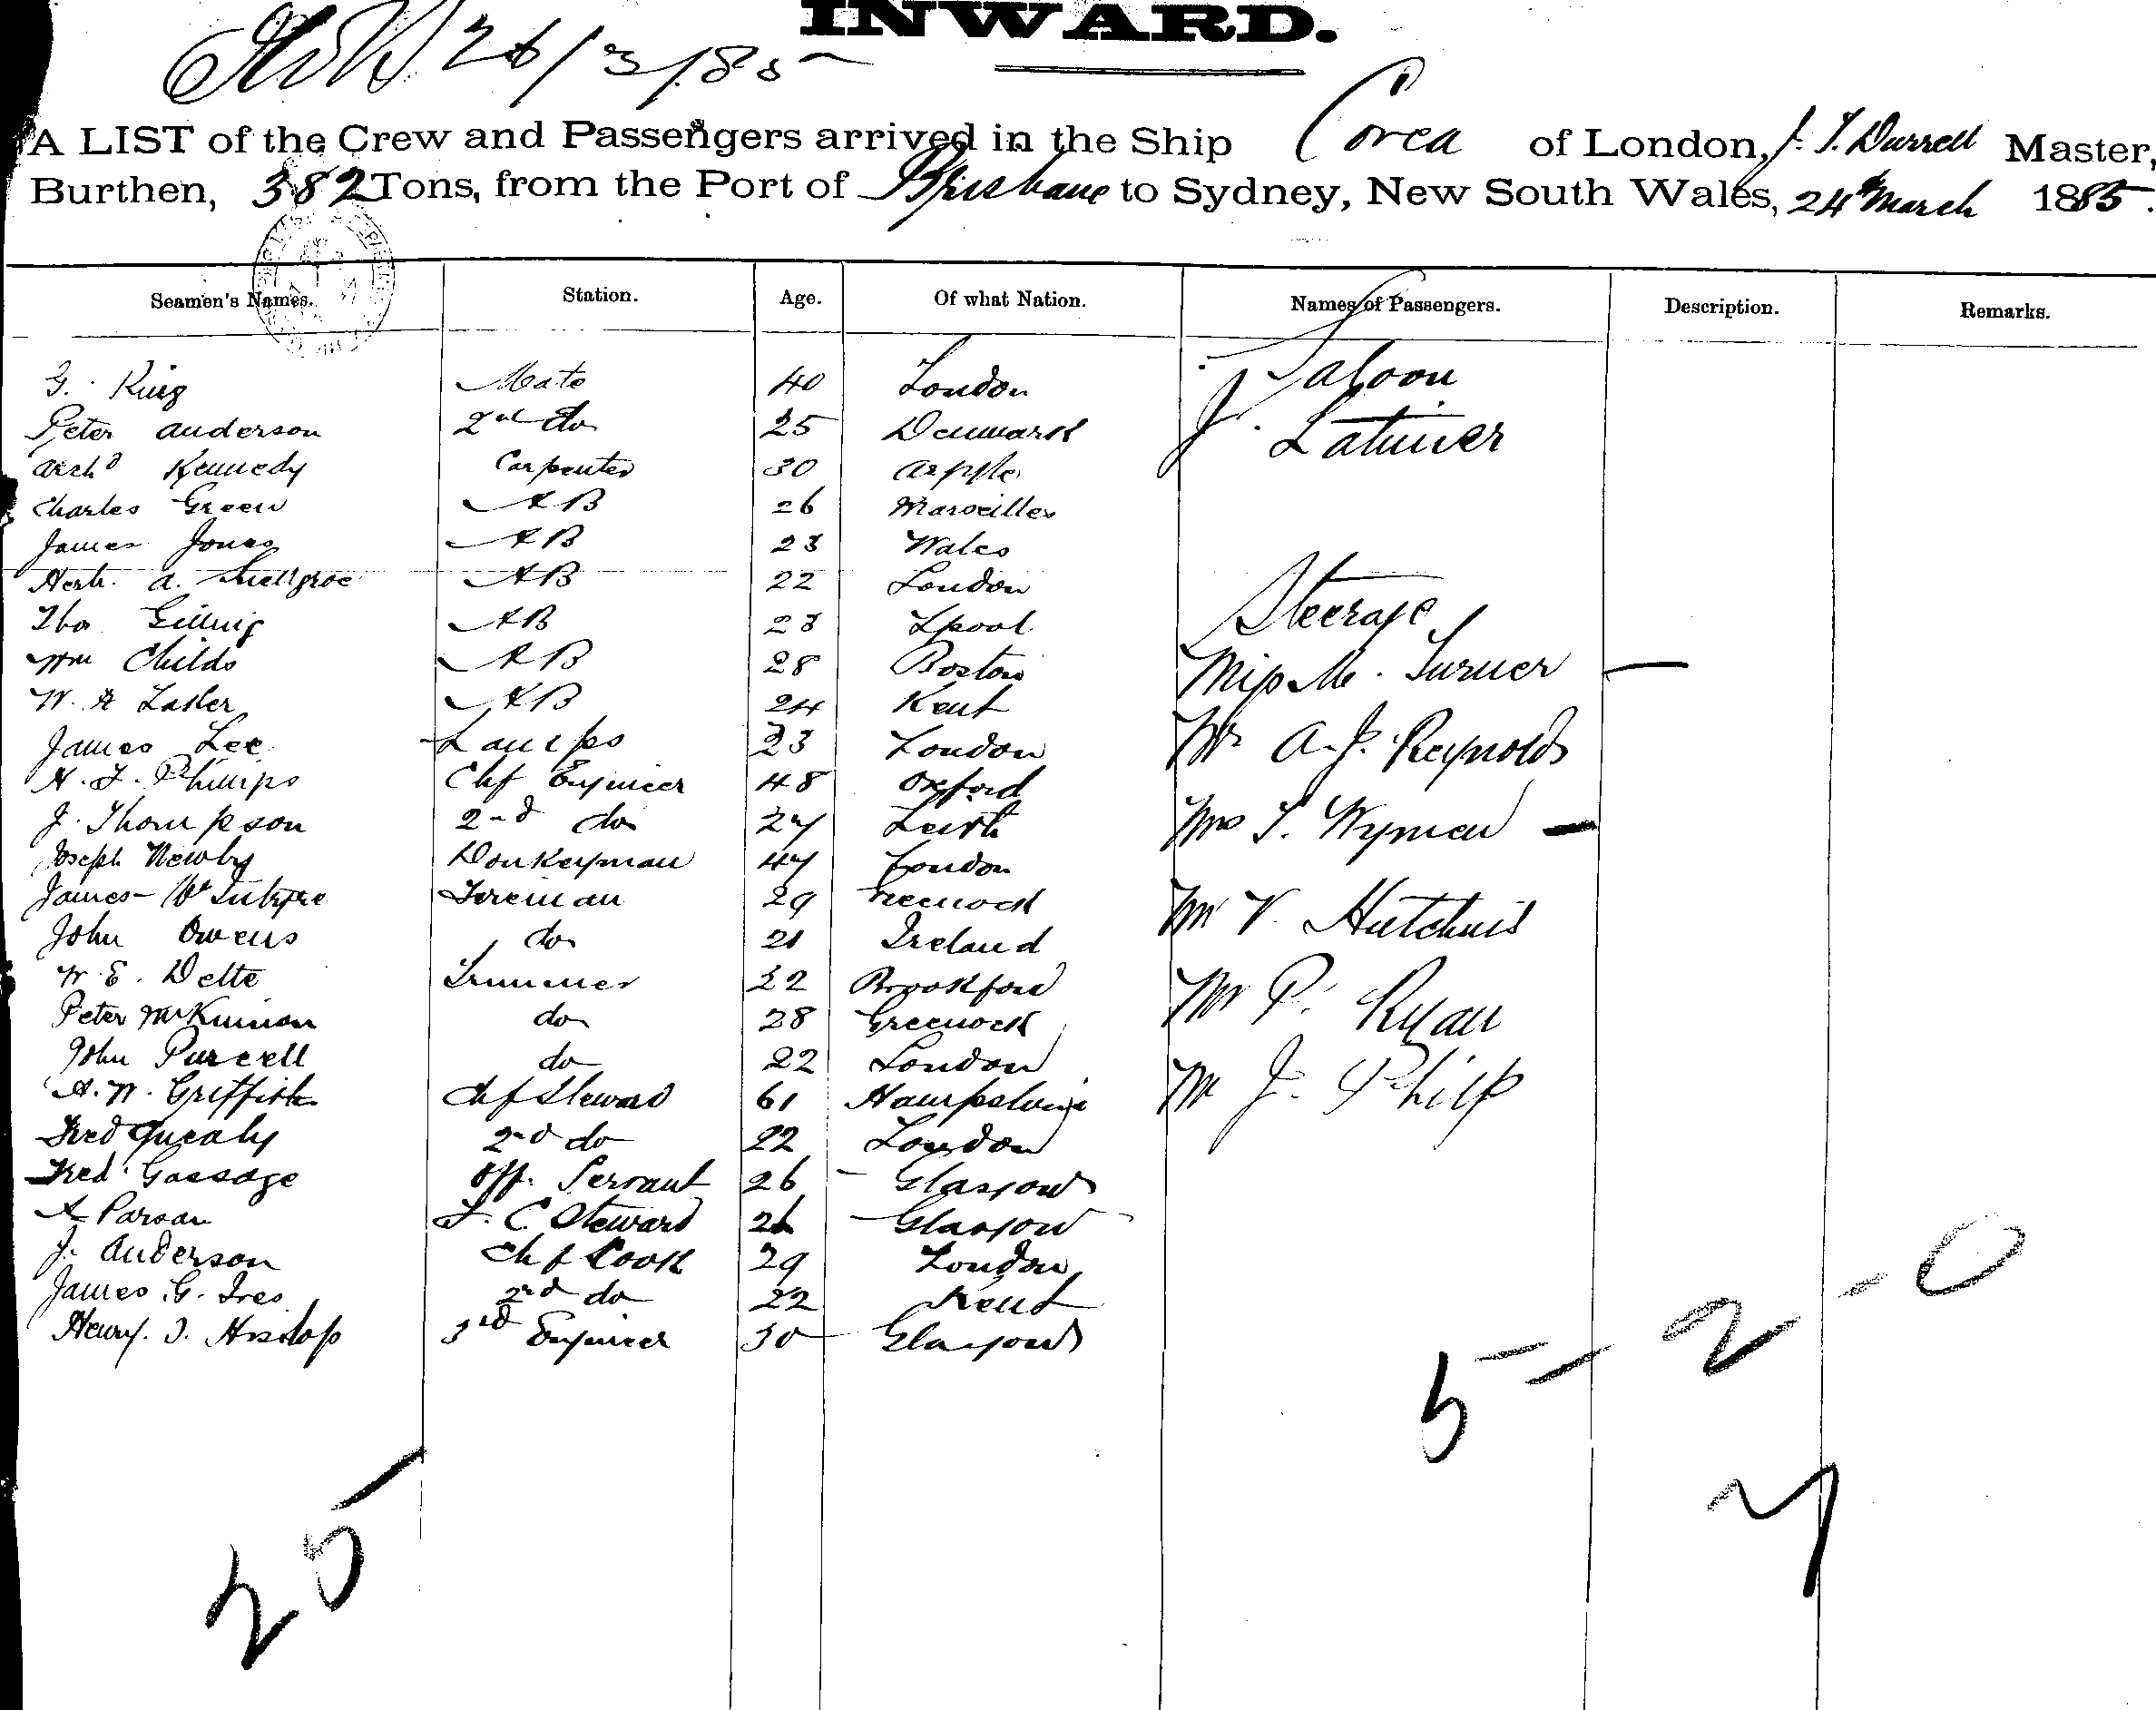 INWARD.
26/3/85
A LIST of the Crew and Passengers arrived in the Ship Corea of London, J. T. Durrell Master,
Burthen, 382 Tons, from the Port of Brisbane to Sydney, New South Wales, 24th March 1885.
Seamen's Names. Station. Age. Of what Nation. Names of Passengers. Description. Remarks.
G. King Mate 40 London Saloon
Peter Anderson 2nd do 25 Denmark J. Latimer
Archd Kennedy Carpenter 30
Charles Green AB 26 Marseilles
James Jones AB 23 Wales
Herb. A. AB 22 London
Thos AB 23 Lpool Steerage
Wm Childs AB 28 Boston Miss M. Turner —
W. A AB 24 Kent
James Lee Lamps 23 London Mr A. J. Reynolds
Chf Engineer 48 Oxford
J. Thompson 2nd do 27 Leith Mrs T. Wyman —
Joseph Newby Donkeyman 47 London
James McIntyre Fireman 29 Greenock Mr V. Hutchins
John Owens do 21 Ireland
W. E. Delte Trimmer 22
Peter McKinnon do 28 Greenock Mr P. Ryan
John Purcell do 22 London
A. W. Griffith Chf Steward 61 Hampshire Mr J. Philp
Fred 2nd do 22 London
Fred Gossage Off. Servant 26 — Glasgow
A Parson F. C. Steward 26 — Glasgow
J. Anderson Chf Cook 29 London
James G. Ives 2nd do 22 Kent
Henry. Hislop 3rd Engineer 30 Glasgow
5 - 2 - 0
25 7